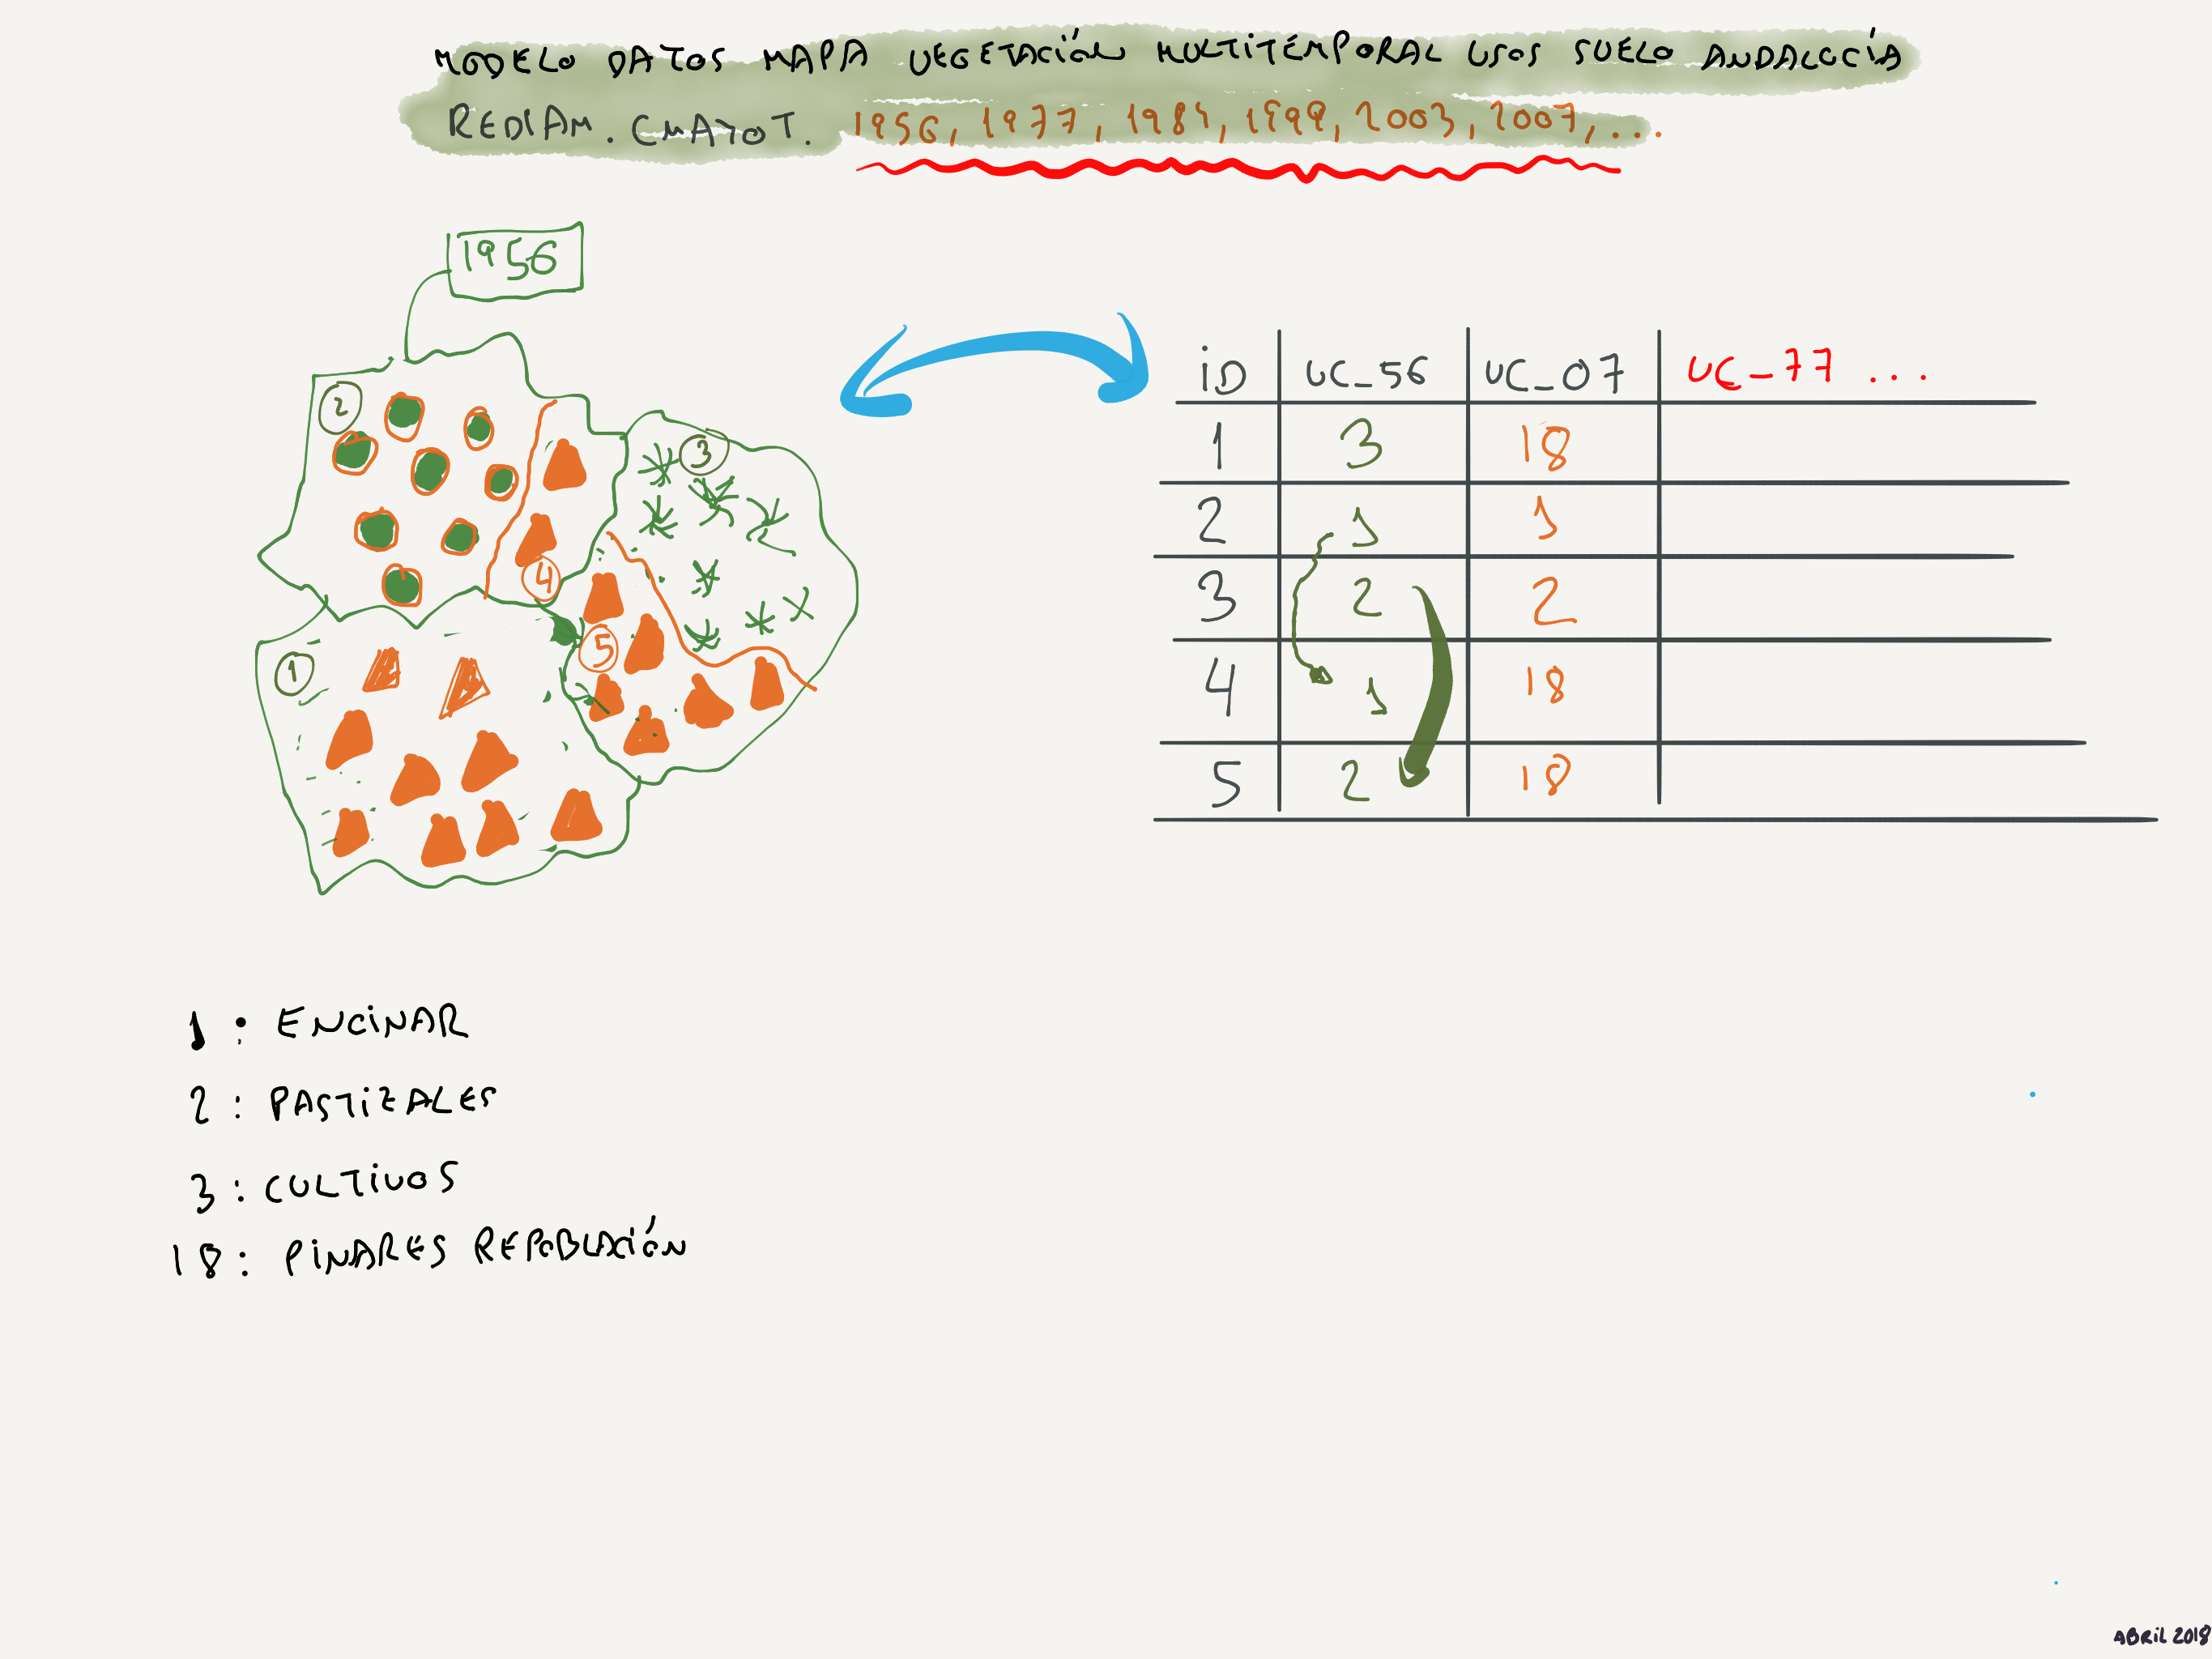 MODELO DATOS MAPA VEGETACIÓN MULTITÉMPORAL USOS SUELO ANDALUCÍA
REDIAM. CMAYOT. 1956, 1977, 1984, 1999, 2003, 2007, ...
1956
2
3
4
5
1
iD UC_56 UC_07 UC_77 ...
1 3 18
2 1 1
3 2 2
4 1 18
5 2 18
1: ENCiNAR
2: PASTIZALES
3: CULTIVOS
18: PiNARES REPOBLACIÓN
ABRiL 2018